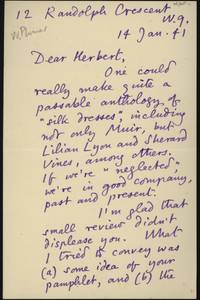 12 Randolph Crescent
W.9.
14 Jan. 41
W. Plomer
Dear Herbert,
One could
really make quite a
passable anthology of
"silk dresses", including
not only Muir, but
Lilian Lyon and Sherard
Vines, among others.
If we're "neglected"
we're in good company,
past and present.
I'm glad that
small review didn't
displease you. What
I tried to convey was
(a) some idea of your
pamphlet, and (b) the